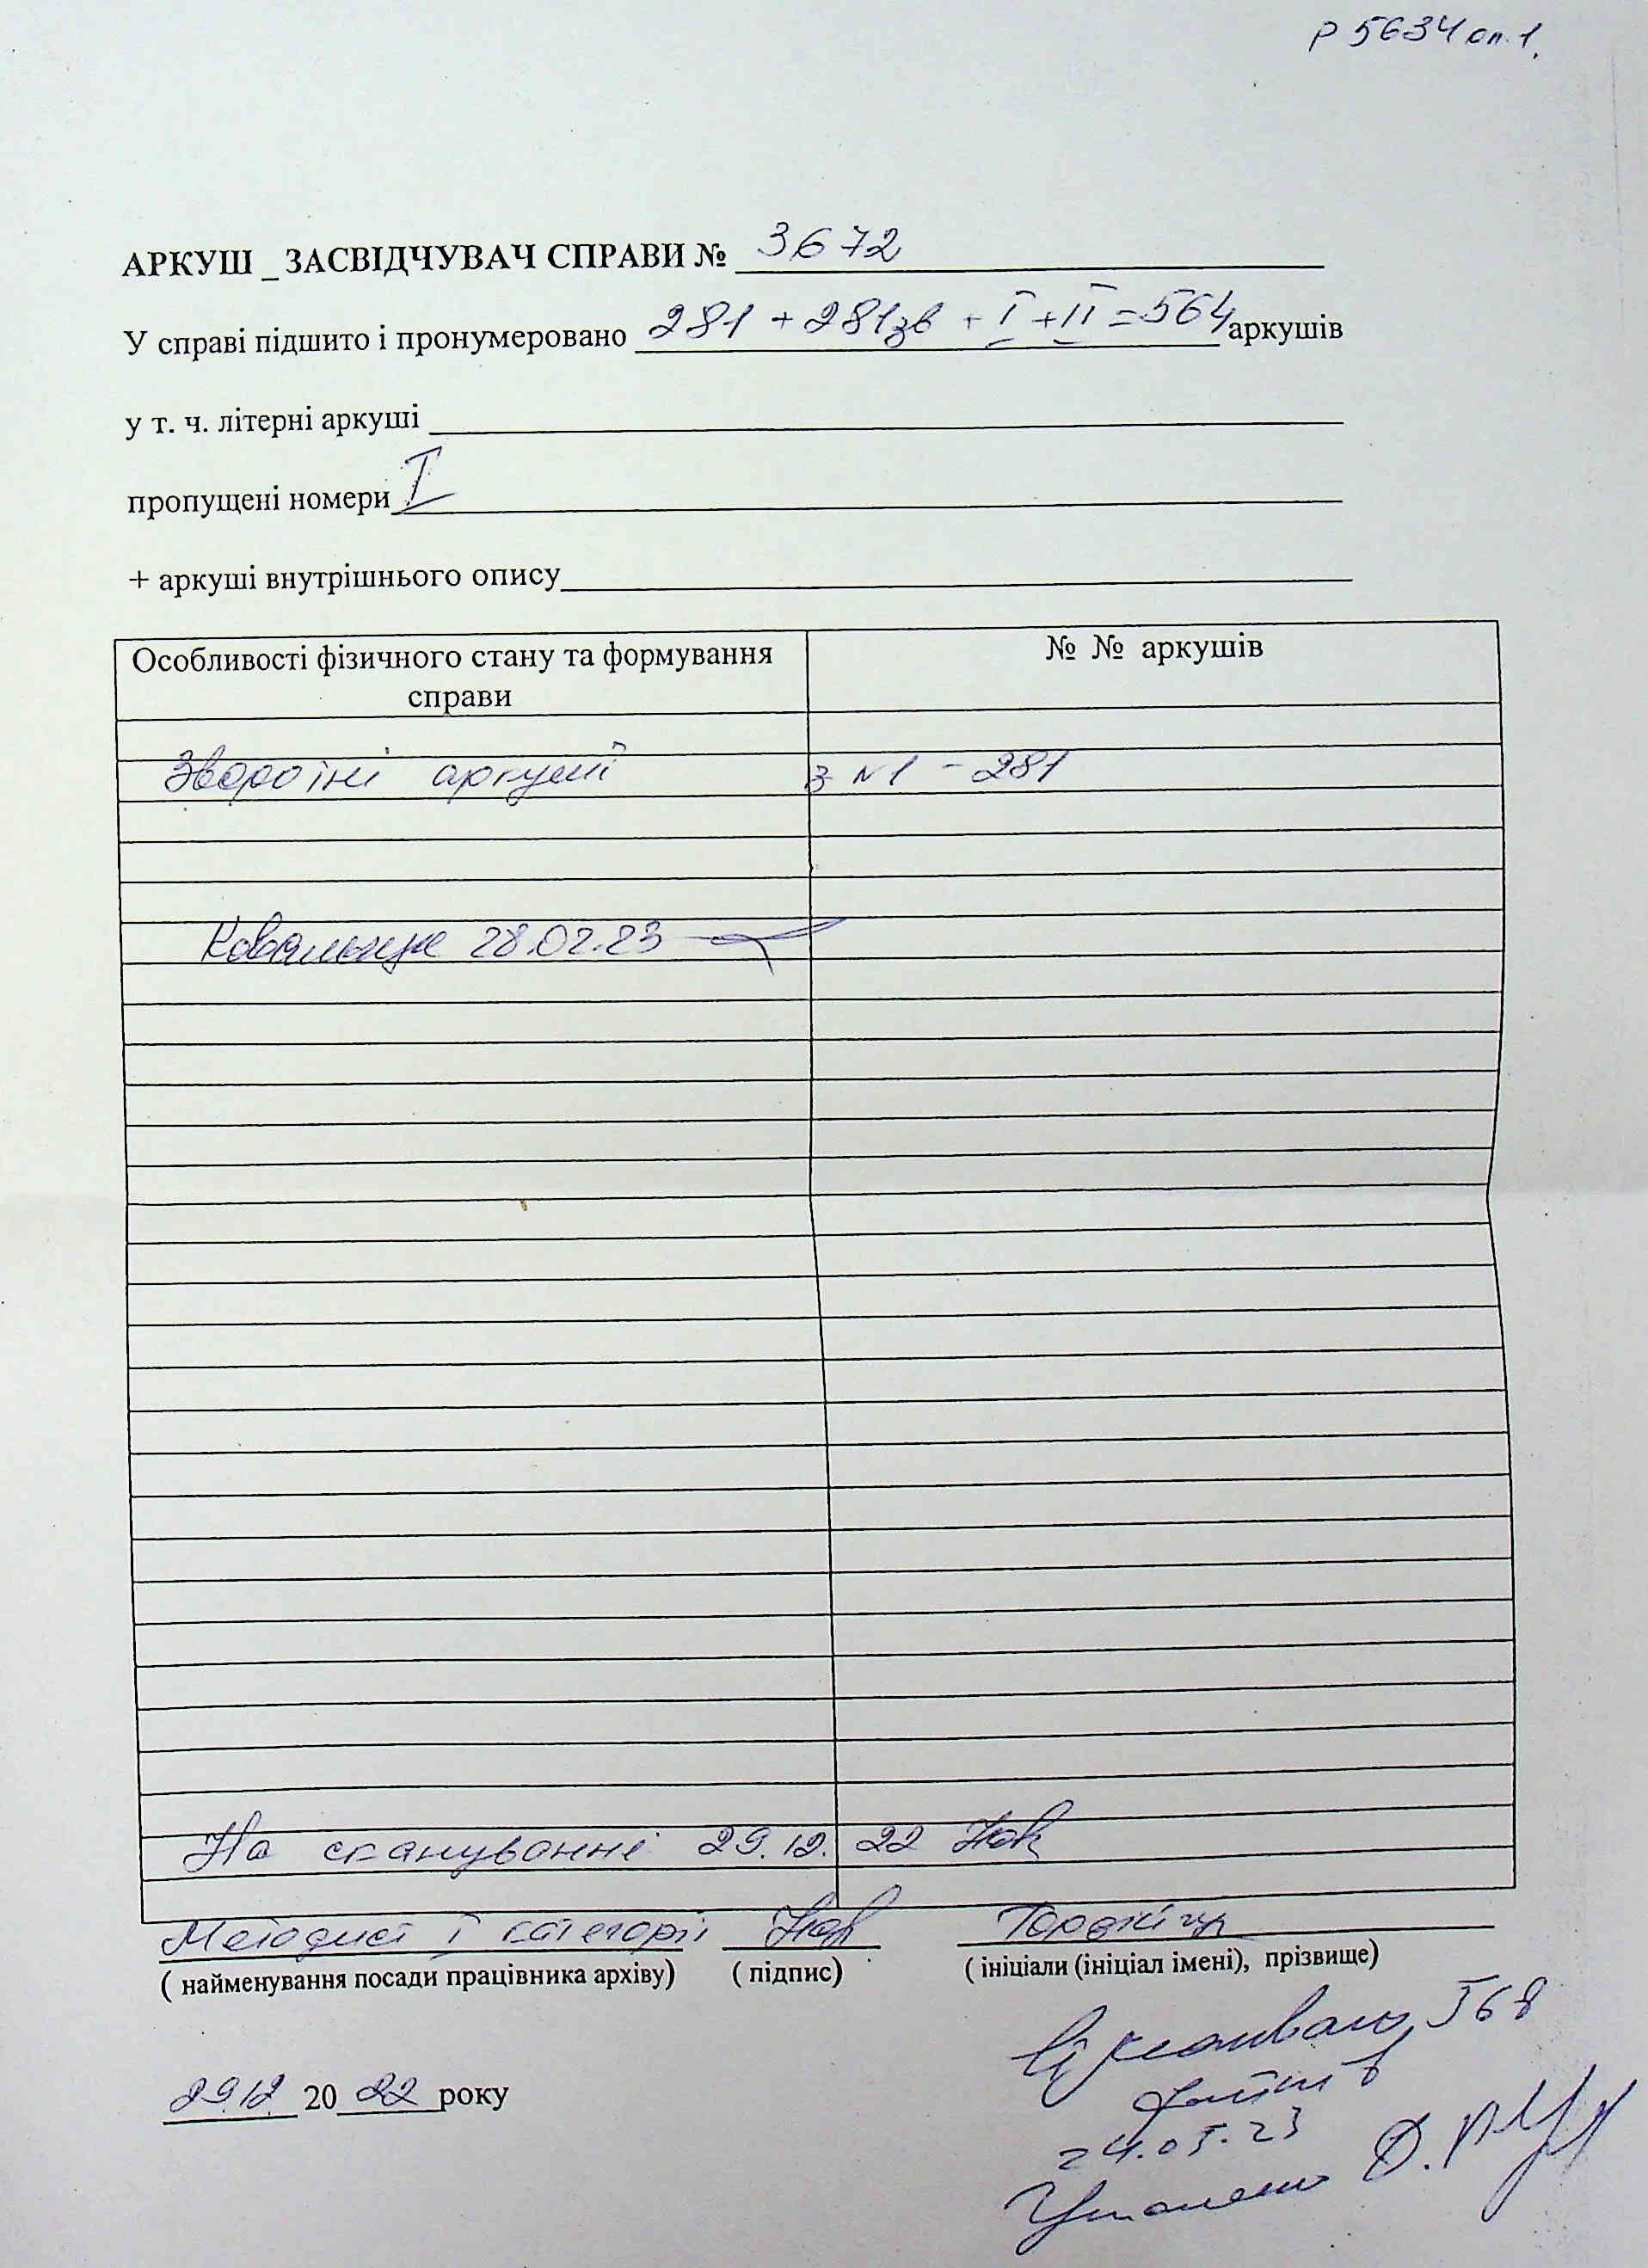 Р 5634 оп. 1.
АРКУШ _ ЗАСВІДЧУВАЧ СПРАВИ № 3672
У справі підшито і пронумеровано 281 + 281зв + I + II = 564 аркушів
у т. ч. літерні аркуші
пропущені номери I
+ аркуші внутрішнього опису
Особливості фізичного стану та формування
справи
№ № аркушів
Зворотні аркуші з №1 - 281
28.02.23
На скануванні 29.12.22
Методист I категорії
( найменування посади працівника архіву) ( підпис) ( ініціали (ініціал імені), прізвище)
568
файлів
29.12. 20 22 року
24.05.23